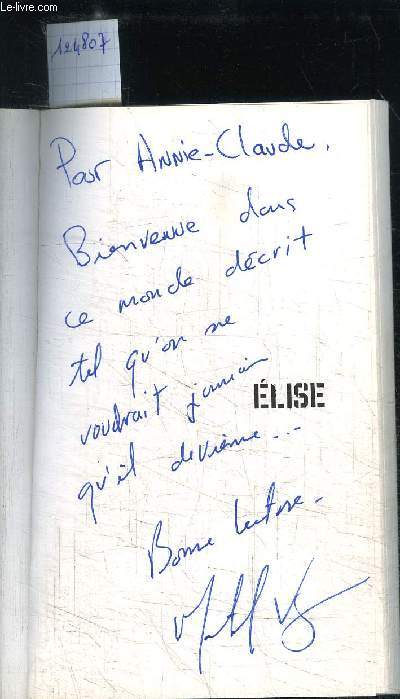 Le-livre.com
124807
Pour Annie-Claude,
Bienvenue dans
ce monde décrit
tel qu'on ne
voudrait jamais
ÉLISE
qu'il devienne...
Bonne lecture.